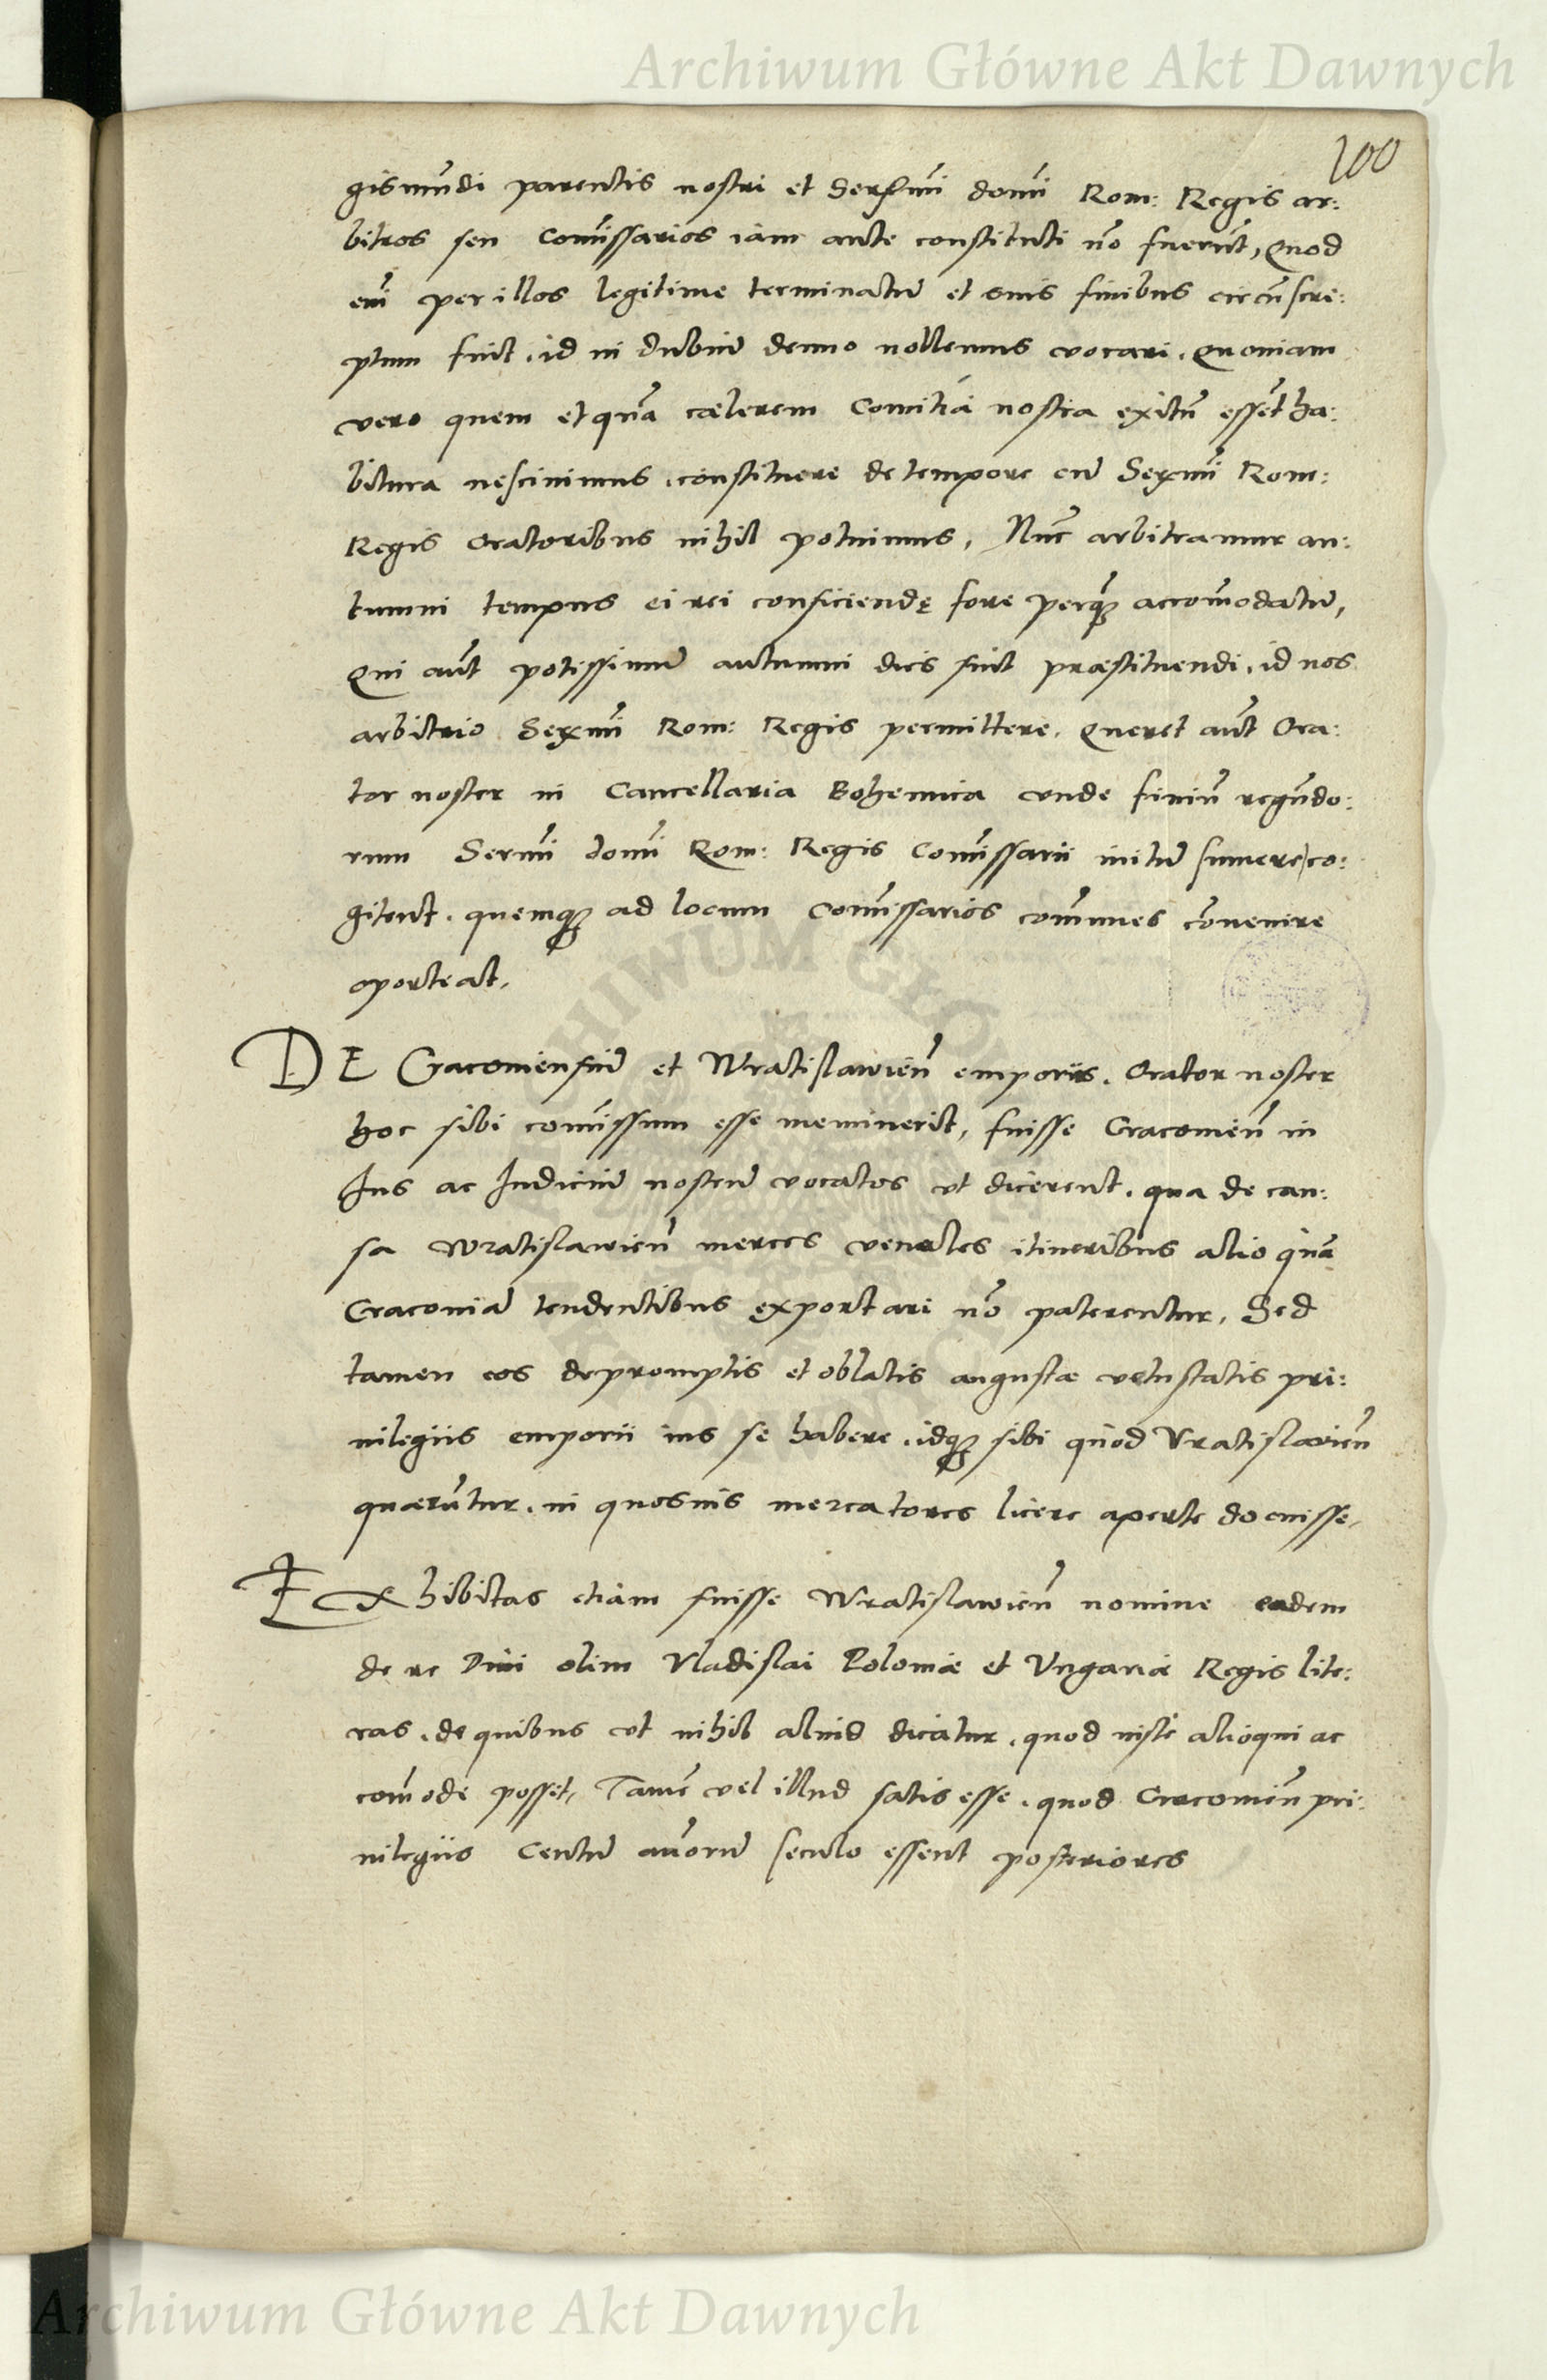 Archiwum Główne Akt Dawnych
100
gismūdi parentis nostri et Serssmi domī Rom: Regis ar:
bitros seu Comīssarios iam ante constituti nō fuerūt, Quod
enī per illos legitime terminatū et suis finibus circūscri:
ptum fuit, id in dubiū denuo nollemus vocari. Quoniam
vero quem et quā caelerem Comitia nostra exitū essēt ha:
bitura nescivimus, constituere de tempore cū Serm̄i Rom:
Regis Oratoribus nihil potuimus, Nūc arbitramur au:
tumni tempus ei rei conficiendę fore perq̄ accōmodatū,
Qui aūt potissimū autumni dies sint praestituendi, id nos
arbitrio Serm̄i Rom: Regis permittere, Queret aūt Ora:
tor noster in Cancellaria Bohemica unde finiū regūdo:
rum Serm̄i domī Rom: Regis Comīssarii initiū sumere co:
gitent, quemq̄ ad locum Comīssarios com̄unes cōvenire
oporteat,
DE Cracoviensiū et Wratislawień emporiis, Orator noster
hoc sibi comīssum esse meminerit, fuisse Cracovień in
Ius ac Iudiciū nostrū vocatos ut dicerent, qua de cau:
sa Wratislawień merces venales itineribus alio quā
Cracoviā tendentibus exportari nō paterentur, Sed
tamen eos depromptis et oblatis augustae vetustatis pri:
vilegiis emporii ius se habere, idq̄ sibi quod Vratislavień
quaerūtur, in quosvis mercatores licere aperte docuisse,
Exhibitas etiam fuisse Wratislawień nomine eadem
de re Divi olim Vladislai Poloniae et Ungariae Regis lite:
ras, de quibus ut nihil aliud dicatur, quod iuste alioqui ac
com̄ode posset, Tamē vel illud satis esse, quod Cracovień pri:
vilegiis Centū annorū seculo essent posteriores
Archiwum Główne Akt Dawnych